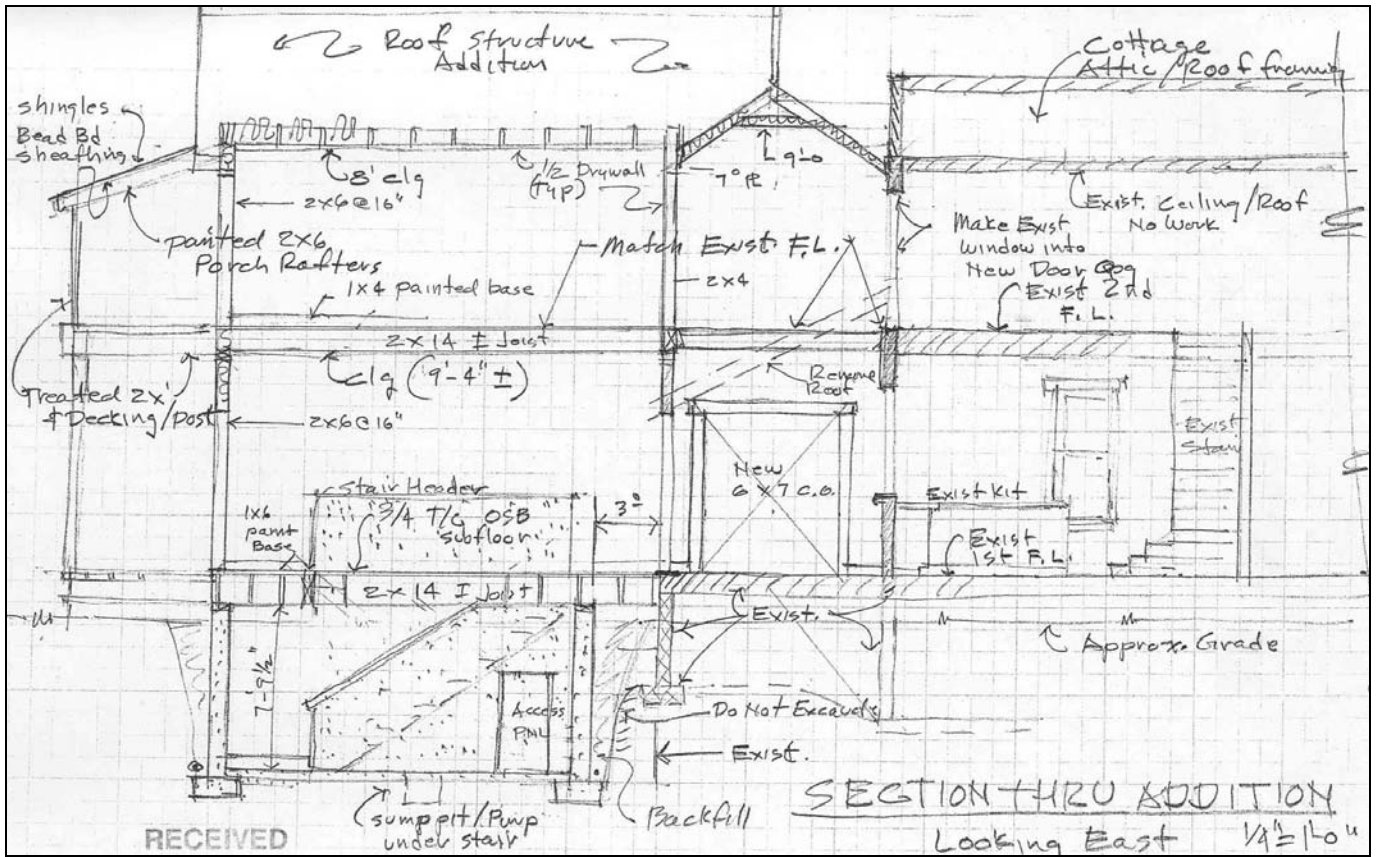 Roof Structure
Addition
Cottage
Attic/Roof framing
shingles
Bead Bd
sheathing
8' clg
1/2 Drywall
(typ)
9'-0
2x6@16"
painted 2x6
Porch Rafters
Match Exist F.L.
2x4
Exist. Ceiling/Roof
No Work
Make Exist
Window into
New Door
Exist 2nd
F.L.
1x4 painted base
2x14 I Joist
clg (9'-4" ±)
Remove
Roof
Treated 2x'
+ Decking/post
2x6@16"
Exist
Stair
New
6x7 c.o.
Stair Header
3/4 T/G OSB
subfloor
3°
1x6
paint
Base
Exist Kit
Exist
1st F.L.
2x14 I Joist
Exist.
Approx. Grade
7'-9 1/2"
Access
PNL
Do Not Excavate
Exist.
Sump pit/Pump
under stair
Backfill
SECTION THRU ADDITION
Looking East 1/4"=1'-0"
RECEIVED